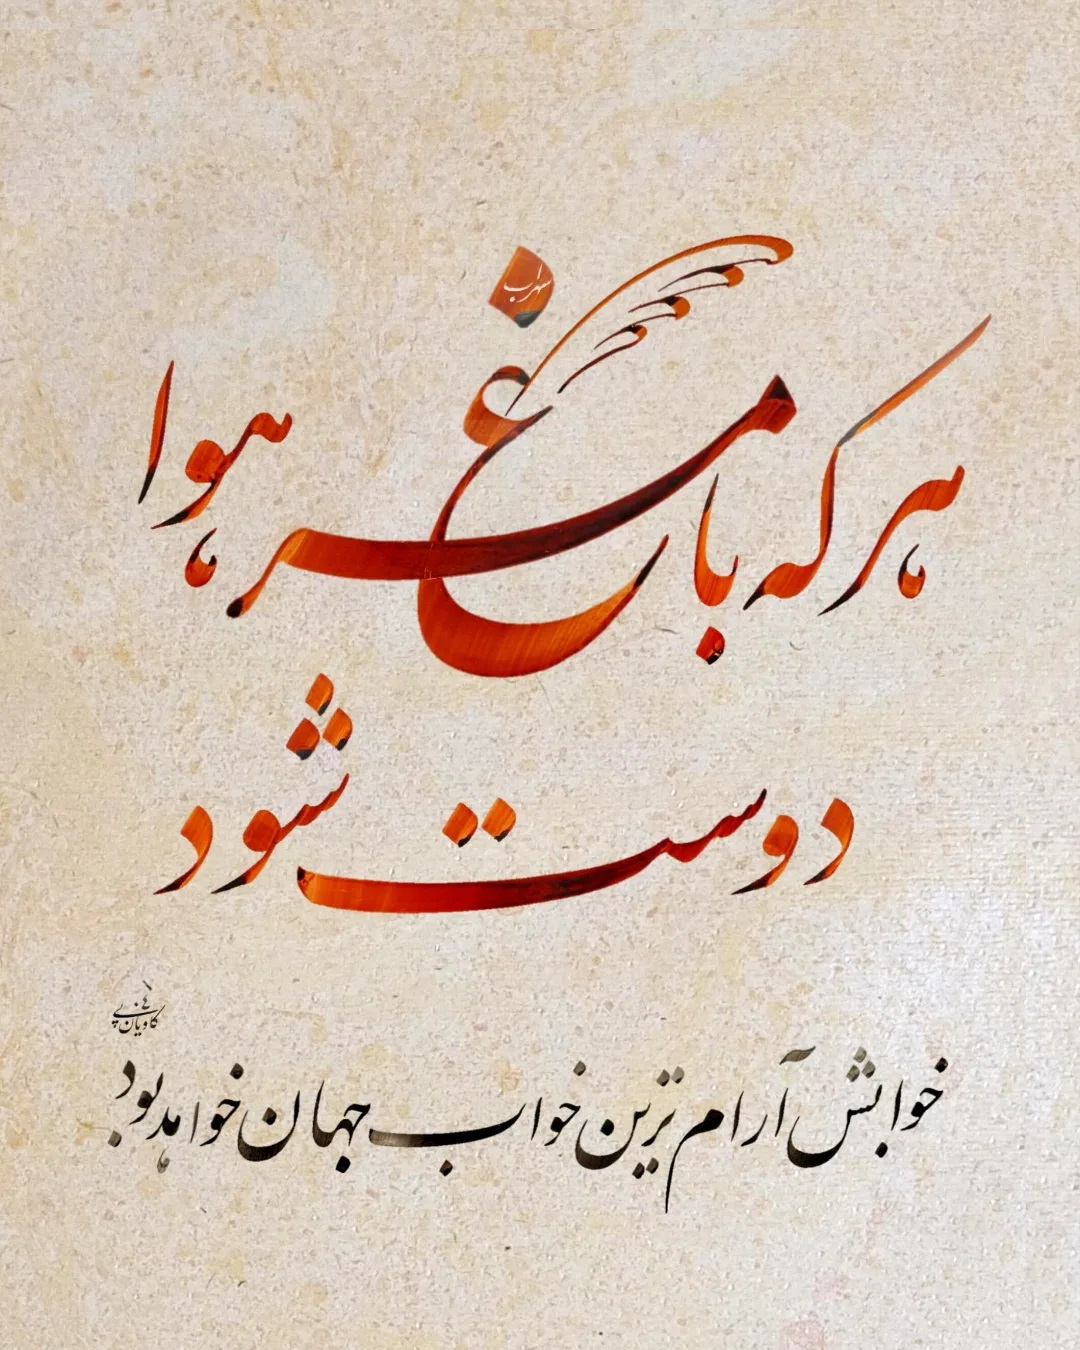 سهراب
هر که با مرغ هوا
دوست شود
خوابش آرام ترین خواب جهان خواهد بود